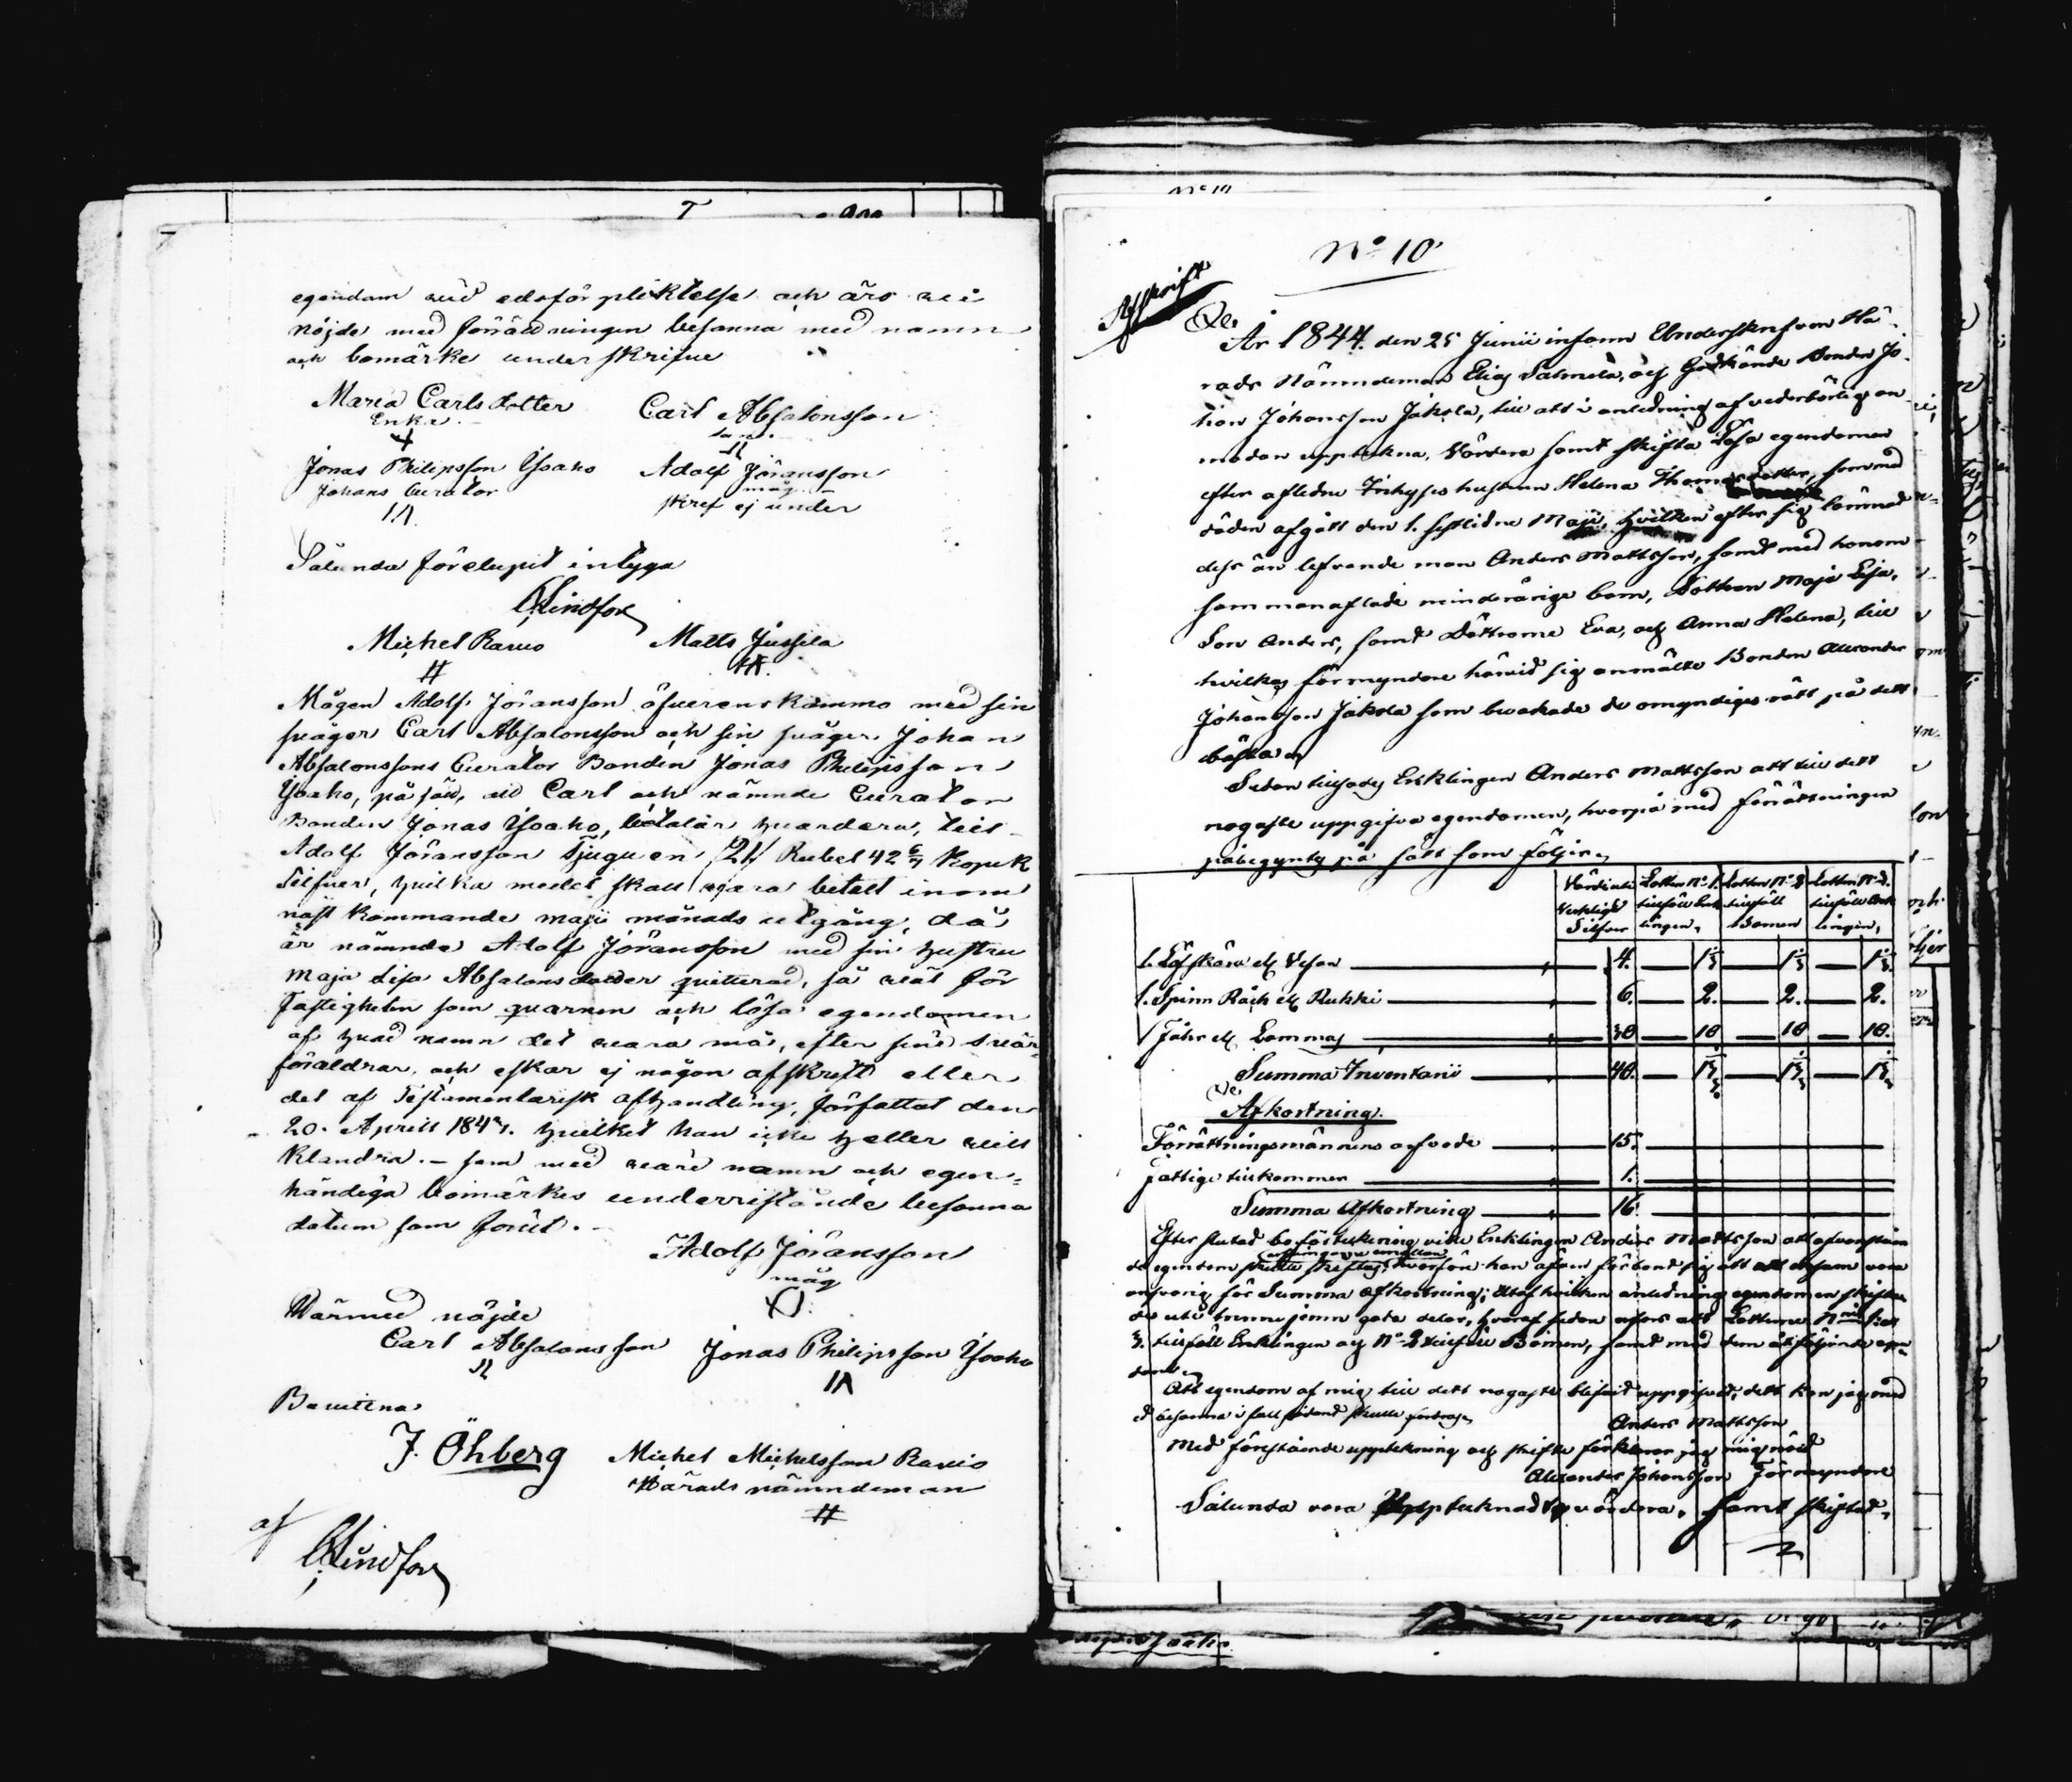 egendom vid edsförpliktelse och äro vi
nöjde med förrättningen besanna med namn
och bomärke underskrifne
Maria Carlsdotter Carl Absalonsson
Enka son
Jonas Philipsson Ysoaho Adolf Jöransson
Johans Curator måg
skref ej under
Sålunda förelupit intyga
C Lindfors
Michel Ravio Matts Jussila
Mågen Adolf Jöransson öfverenskommo med sin
svåger Carl Absalonsson och sin svåger Johan
Absalonssons Curator Bonden Jonas Philipsson
Ysoaho, på sätt, att Carl och nämnde Curator
Bonden Jonas Ysoaho, betalar hvardera, till
Adolf Jöransson Tjuguen 21 Rubel 42 6/7 Kopek
Silfver, hvilka medel skall vara betalt inom
näst kommande maji månads utgång, då
är nämnda Adolf Jöransson med sin hustru
Maja Lisa Absalonsdotter quitterad, så väl för
Fastigheten som quarnen och lösa egendomen
af hvad namn det vara må, efter sine svär-
föräldrar, och eskar ej någon afskrift eller
del af Testamentarisk afhandling, författat den
20. Aprill 184. hvilket han icke heller vill
Klandra. – som med våre namn och egen-
händiga bomärkes underristande besanna
datum som förut. –
Adolf Jöransson
måg
Härmed nöjde
Carl Absalonsson Jonas Philipsson Ysoaho
Bevittna
J. Öhberg Michel Michelsson Ravio
Härads nämndeman
af
C Lindfors
No 10
Afskrift
År 1844. den 25 Junii infann Undersknfven Hä-
rads Nämndeman Elias Salmela, och Godkände Bonden Jo-
han Johansson Jakola, till att i anledning af vederbörlig an-
modan uppteckna, Värdera samt skifta Lösa egendomen
efter aflidne Inhyses hustrun Helena Thomasdotter, som med
döden afgått den 1. sistlidne Maji, hvilken efter sig lämnad
dess än lefvande man Anders Mattsson, samt med honom
sammanaflade minderårige barn, Dottren Maja Lisa,
Son Anders, samt Döttrarne Eva, och Anna Helena, till
hvilkas förmyndare härvid sig anmälte Bonden Alexander
Johansson Jakola som bevakade de omyndiges rätt på det
bästa.
Sedan tillsades Enklingen Anders Mattsson att till dett
nogaste uppgifva egendomen, hvarpå med förrättningen
påbegyntes på sätt som följer,
Värde uti Lotten No 1. Lotten No 2 Lotten No 3.
Verkligt tillföll Enk tillföll tillföll Enk
Silfver lingen, Barnen lingen,
1. Löfskära eller Vesa 4. 1 1/3 1 1/3 1 1/3
1. Spinn Råck eller Rukki 6. 2. 2. 2.
1 Fåhr eller Lammas 30 10 10 10.
Summa Inventarii 40. 13 1/3 13 1/3 13 1/3
Afkortning.
Förrättningsmännens arfvode 15.
Fattige tillkommer 1.
Summa Afkortning 16
Efter slutad beförteckning ville Enklingen Anders Mattsson att ofvanstående
egendom skulle skiftas, hvarföre han äfven förbond sig att ensam vara
ansvarig för Summa Afkortning; Utaf hvilken anledning egendomen skiftades
uti trenne jemn goda delar, hvaraf sedan utföll att Lotterne No 1 och
3. tillföll Enklingen och No 2 tillföll Barnen, samt med dem
Att egendom af mig till dett nogaste blifvit uppgifvet, dett kan jag med
ed besanna i fall sådant skulle fordras,
Anders Mattsson
Med förestående uppteckning och skifte förklarar jag mig nöjd
Alexander Johansson Förmyndare
Sålunda vara Upptecknadt, värdera, samt skiftad,